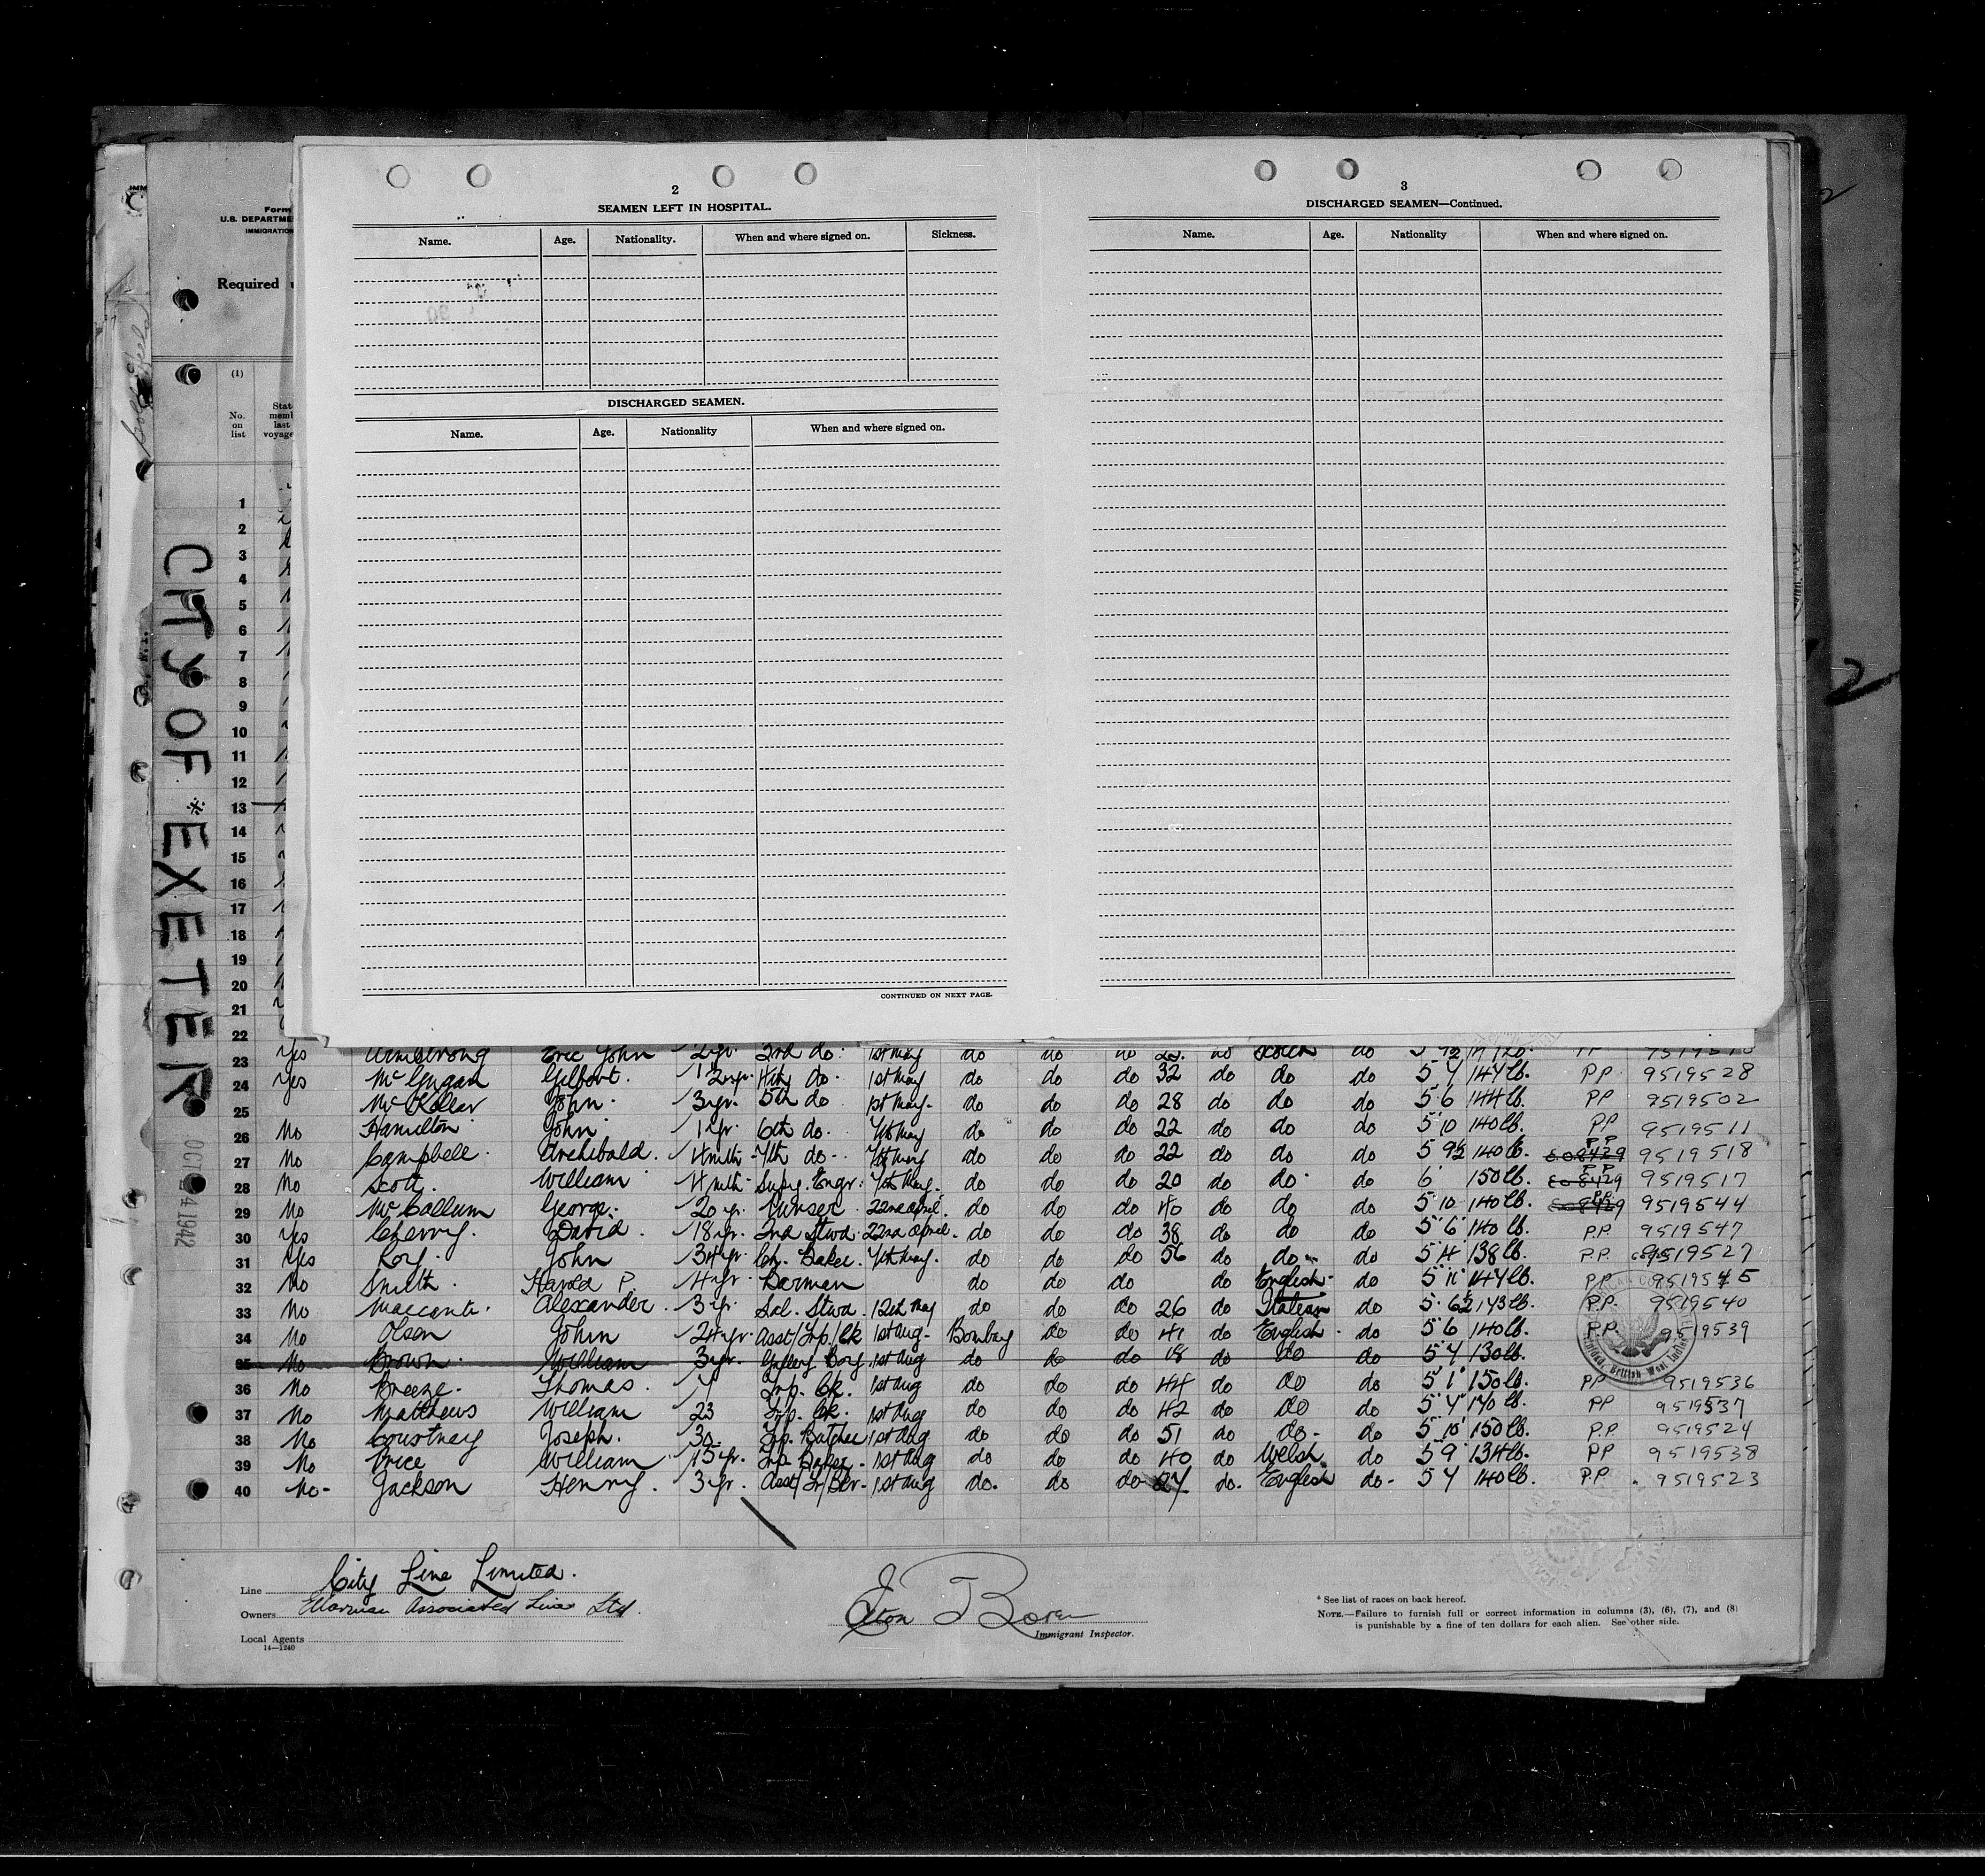 2
SEAMEN LEFT IN HOSPITAL.
Name. Age. Nationality. When and where signed on. Sickness.
DISCHARGED SEAMEN.
Name. Age. Nationality When and where signed on.
CONTINUED ON NEXT PAGE.
3
DISCHARGED SEAMEN—Continued.
Name. Age. Nationality When and where signed on.
2
Form
U.S. DEPARTME
IMMIGRATION
Required
(1)
No. on list
CITY OF * EXETER
1942
1
2
3
4
5
6
7
8
9
10
11
12
13
14
15
16
17
18
19
20
21
22
23 Yes Armstrong Eric John 2nd do. 1st May do do do do do
24 Yes McGugan Gilbert. 4th do. 1st May do do do 32 do do do 5 7 147 lb. PP 9519528
25 McKellar John. 3 yr. 5th do 1st May. do do do 28 do do do 5 6 144 lb. PP 9519502
26 No Hamilton John 1 yr. 6th do. 7th May do do do 22 do do do 5 10 140 lb. PP 9519511
27 No Campbell. Archibald. 4 mth 7th do. 7th May do do do 22 do do do 5 9½ 140 lb. PP 9519518
28 No Scott. William 4 mth Supy. Engr. 7th May. do do do 20 do do do 6 150 lb. PP 9519517
29 No McCallum George. 20 yr. Purser 22nd April. do do do 40 do do do 5 10 140 lb. PP 9519544
30 Yes Cherry. David. 18 yr. 2nd Stwd. 22nd April. do do do 38 do do do 5 6 140 lb. P.P. 9519547
31 Yes Roy. John 34 yr. Ch. Baker. 7th May. do do do 56 do do do 5 4 138 lb. P.P. 9519527
32 No Smith. Harold P. 4 yr. Barman do do do do English do 5 11 147 lb. P.P. 9519545
33 No Macconti. Alexander. 3 yr. Sal. Stwd. 12th May do do do 26 do Italian do 5 6½ 143 lb. P.P. 9519540
34 No Olson John 24 yr. Asst/Trp/Ck 1st Aug. Bombay do do 41 do English do 5 6 140 lb. P.P. 9519539
35 No Brown. William 3 yr. Galley Boy. 1st Aug do do do 18 do do do 5 7 130 lb.
36 No Breeze. Thomas. 7 Trp. Ck. 1st Aug do do do 44 do do do 5 1 150 lb. PP 9519536
37 No Matthews William 23 Trp. Ck. 1st Aug do do do 42 do do do 5 7 140 lb. PP 9519537
38 No Courtnay Joseph. 30. Trp. Butcher 1st Aug do do do 51 do do do 5 10 150 lb. P.P. 9519524
39 No Price William 15 yr. Trp. Baker 1st Aug do do do 40 do Welsh do 5 9 134 lb. PP 9519538
40 No Jackson Henry. 3 yr. Asst/Tr/Bkr 1st Aug do. do do 27 do. English do 5 7 140 lb. P.P. 9519523
Trinidad, British West Indies
Line City Line Limited.
Owners Ellerman Associated Lines Ltd.
Local Agents
14—1240
Elton J Boren
Immigrant Inspector.
* See list of races on back hereof.
NOTE.—Failure to furnish full or correct information in columns (3), (6), (7), and (8)
is punishable by a fine of ten dollars for each alien. See other side.